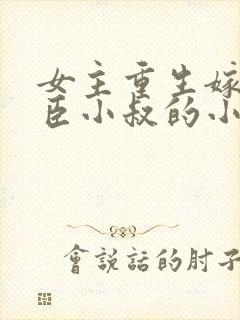 女主重生嫁
臣小叔的小
會說話的肘子